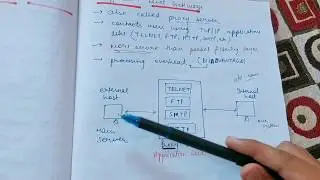 → also called proxy server
→ contacts user using TCP/IP application
like (TELNET, FTP, HTTP, SMTP, etc.)
→ MORE secure than packet filtering
→ processing overhead
external
host
main
server
TELNET
FTP
SMTP
HTTP
internal
host
Application